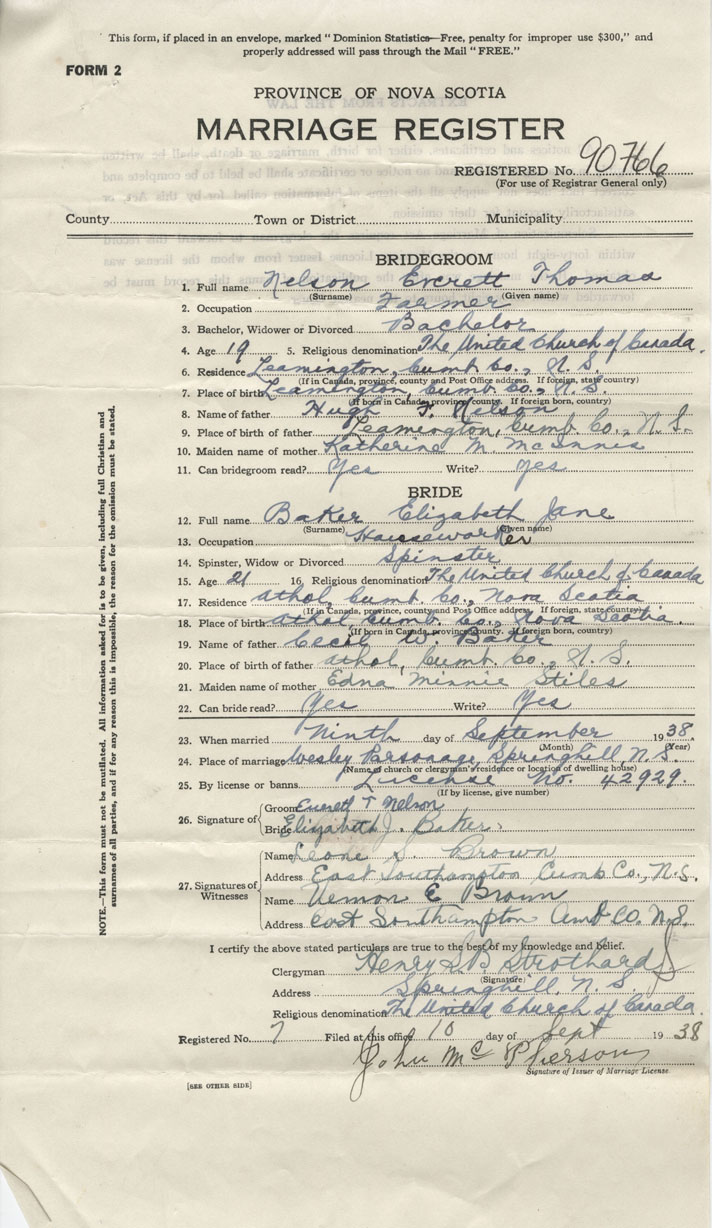 This form, if placed in an envelope, marked "Dominion Statistics—Free, penalty for improper use $300," and
properly addressed will pass through the Mail "FREE."
FORM 2
PROVINCE OF NOVA SCOTIA
MARRIAGE REGISTER
REGISTERED No. 90766
(For use of Registrar General only)
County Town or District Municipality
BRIDEGROOM
1. Full name Nelson Everett Thomas
(Surname) (Given name)
2. Occupation Farmer
3. Bachelor, Widower or Divorced Bachelor
4. Age 19 5. Religious denomination The United Church of Canada.
6. Residence Leamington, Cumb. Co., N. S.
(If in Canada, province, county and Post Office address. If foreign, state county)
7. Place of birth Leamington, Cumb. Co., N. S.
(If born in Canada, province, county. If foreign born, country)
8. Name of father Hugh F. Nelson
9. Place of birth of father Leamington, Cumb. Co., N. S.
10. Maiden name of mother Katherine M. McInnis
11. Can bridegroom read? Yes Write? Yes
BRIDE
12. Full name Baker Elizabeth Jane
(Surname) (Given name)
13. Occupation Houseworker
14. Spinster, Widow or Divorced Spinster
15. Age 21 16. Religious denomination The United Church of Canada
17. Residence Athol, Cumb. Co., Nova Scotia
(If in Canada, province, county and Post Office address. If foreign, state county)
18. Place of birth Athol, Cumb. Co., Nova Scotia.
(If born in Canada, province, county. If foreign born, country)
19. Name of father Cecil W. Baker
20. Place of birth of father Athol, Cumb. Co., N. S.
21. Maiden name of mother Edna Minnie Stiles
22. Can bride read? Yes Write? Yes
23. When married Ninth day of September 1938.
(Month) (Year)
24. Place of marriage Wesley Parsonage, Springhill, N. S.
(Name of church or clergyman's residence or location of dwelling house)
25. By license or banns License No. 42929.
(If by license, give number)
26. Signature of Groom Everett T Nelson
Bride Elizabeth J. Baker.
27. Signatures of Witnesses
Name Leone S. Brown
Address East Southampton Cumb Co., N.S.
Name Vernon E Brown
Address East Southampton Cumb Co. N.S.
I certify the above stated particulars are true to the best of my knowledge and belief.
Clergyman Henry S.B. Strothard
(Signature)
Address Springhill, N. S.
Religious denomination The United Church of Canada.
Registered No. 7 Filed at this office 10 day of Sept 1938
John McPherson
Signature of Issuer of Marriage License
[SEE OTHER SIDE]
NOTE.—This form must not be mutilated. All information asked for is to be given, including full Christian and
surnames of all parties, and if for any reason this is impossible, the reason for the omission must be stated.